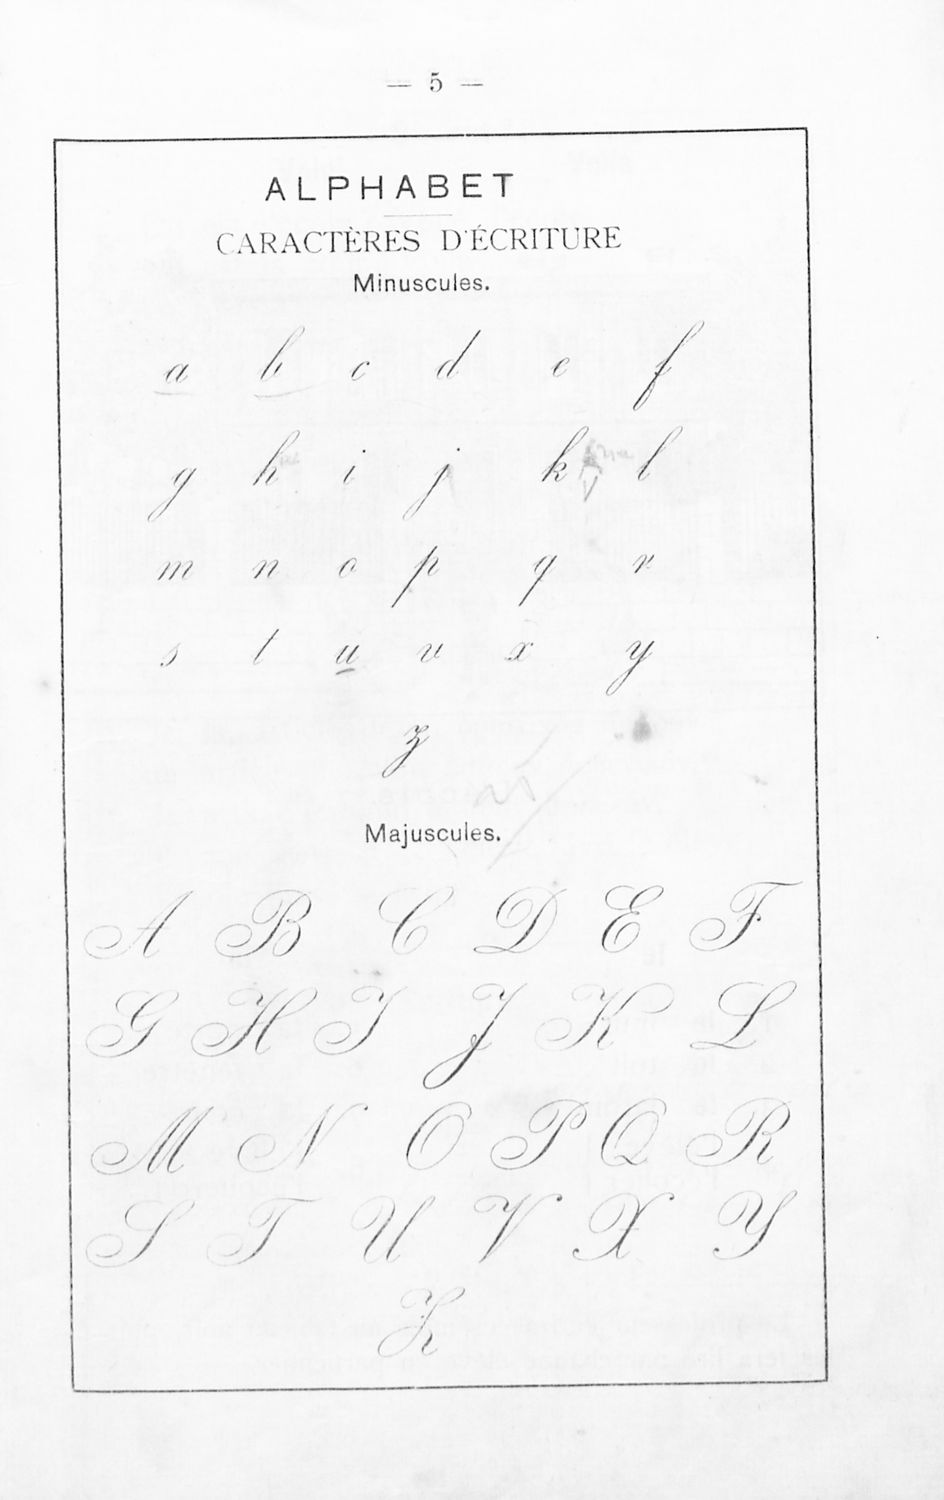 — 5 —
ALPHABET
CARACTÈRES D'ÉCRITURE
Minuscules.
a b c d e f
g h i j k l
m n o p q r
s t u v x y
z
Majuscules.
A B C D E F
G H I J K L
M N O P Q R
S T U V X Y
Z